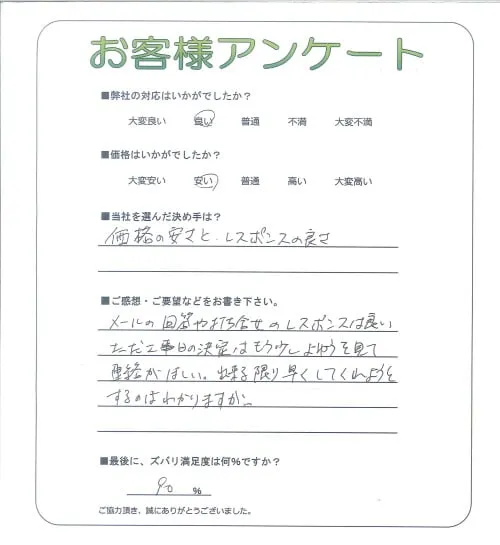 お客様アンケート
■弊社の対応はいかがでしたか？
大変良い 良い 普通 不満 大変不満
■価格はいかがでしたか？
大変安い 安い 普通 高い 大変高い
■当社を選んだ決め手は？
価格の安さと、レスポンスの良さ
■ご感想・ご要望などをお書き下さい。
メールの回答や打ち合せのレスポンスは良い
ただ工事日の決定はもう少しようすを見て
連絡がほしい。出来る限り早くしてくれようと
するのはわかりますが…
■最後に、ズバリ満足度は何％ですか？
90 ％
ご協力頂き、誠にありがとうございました。